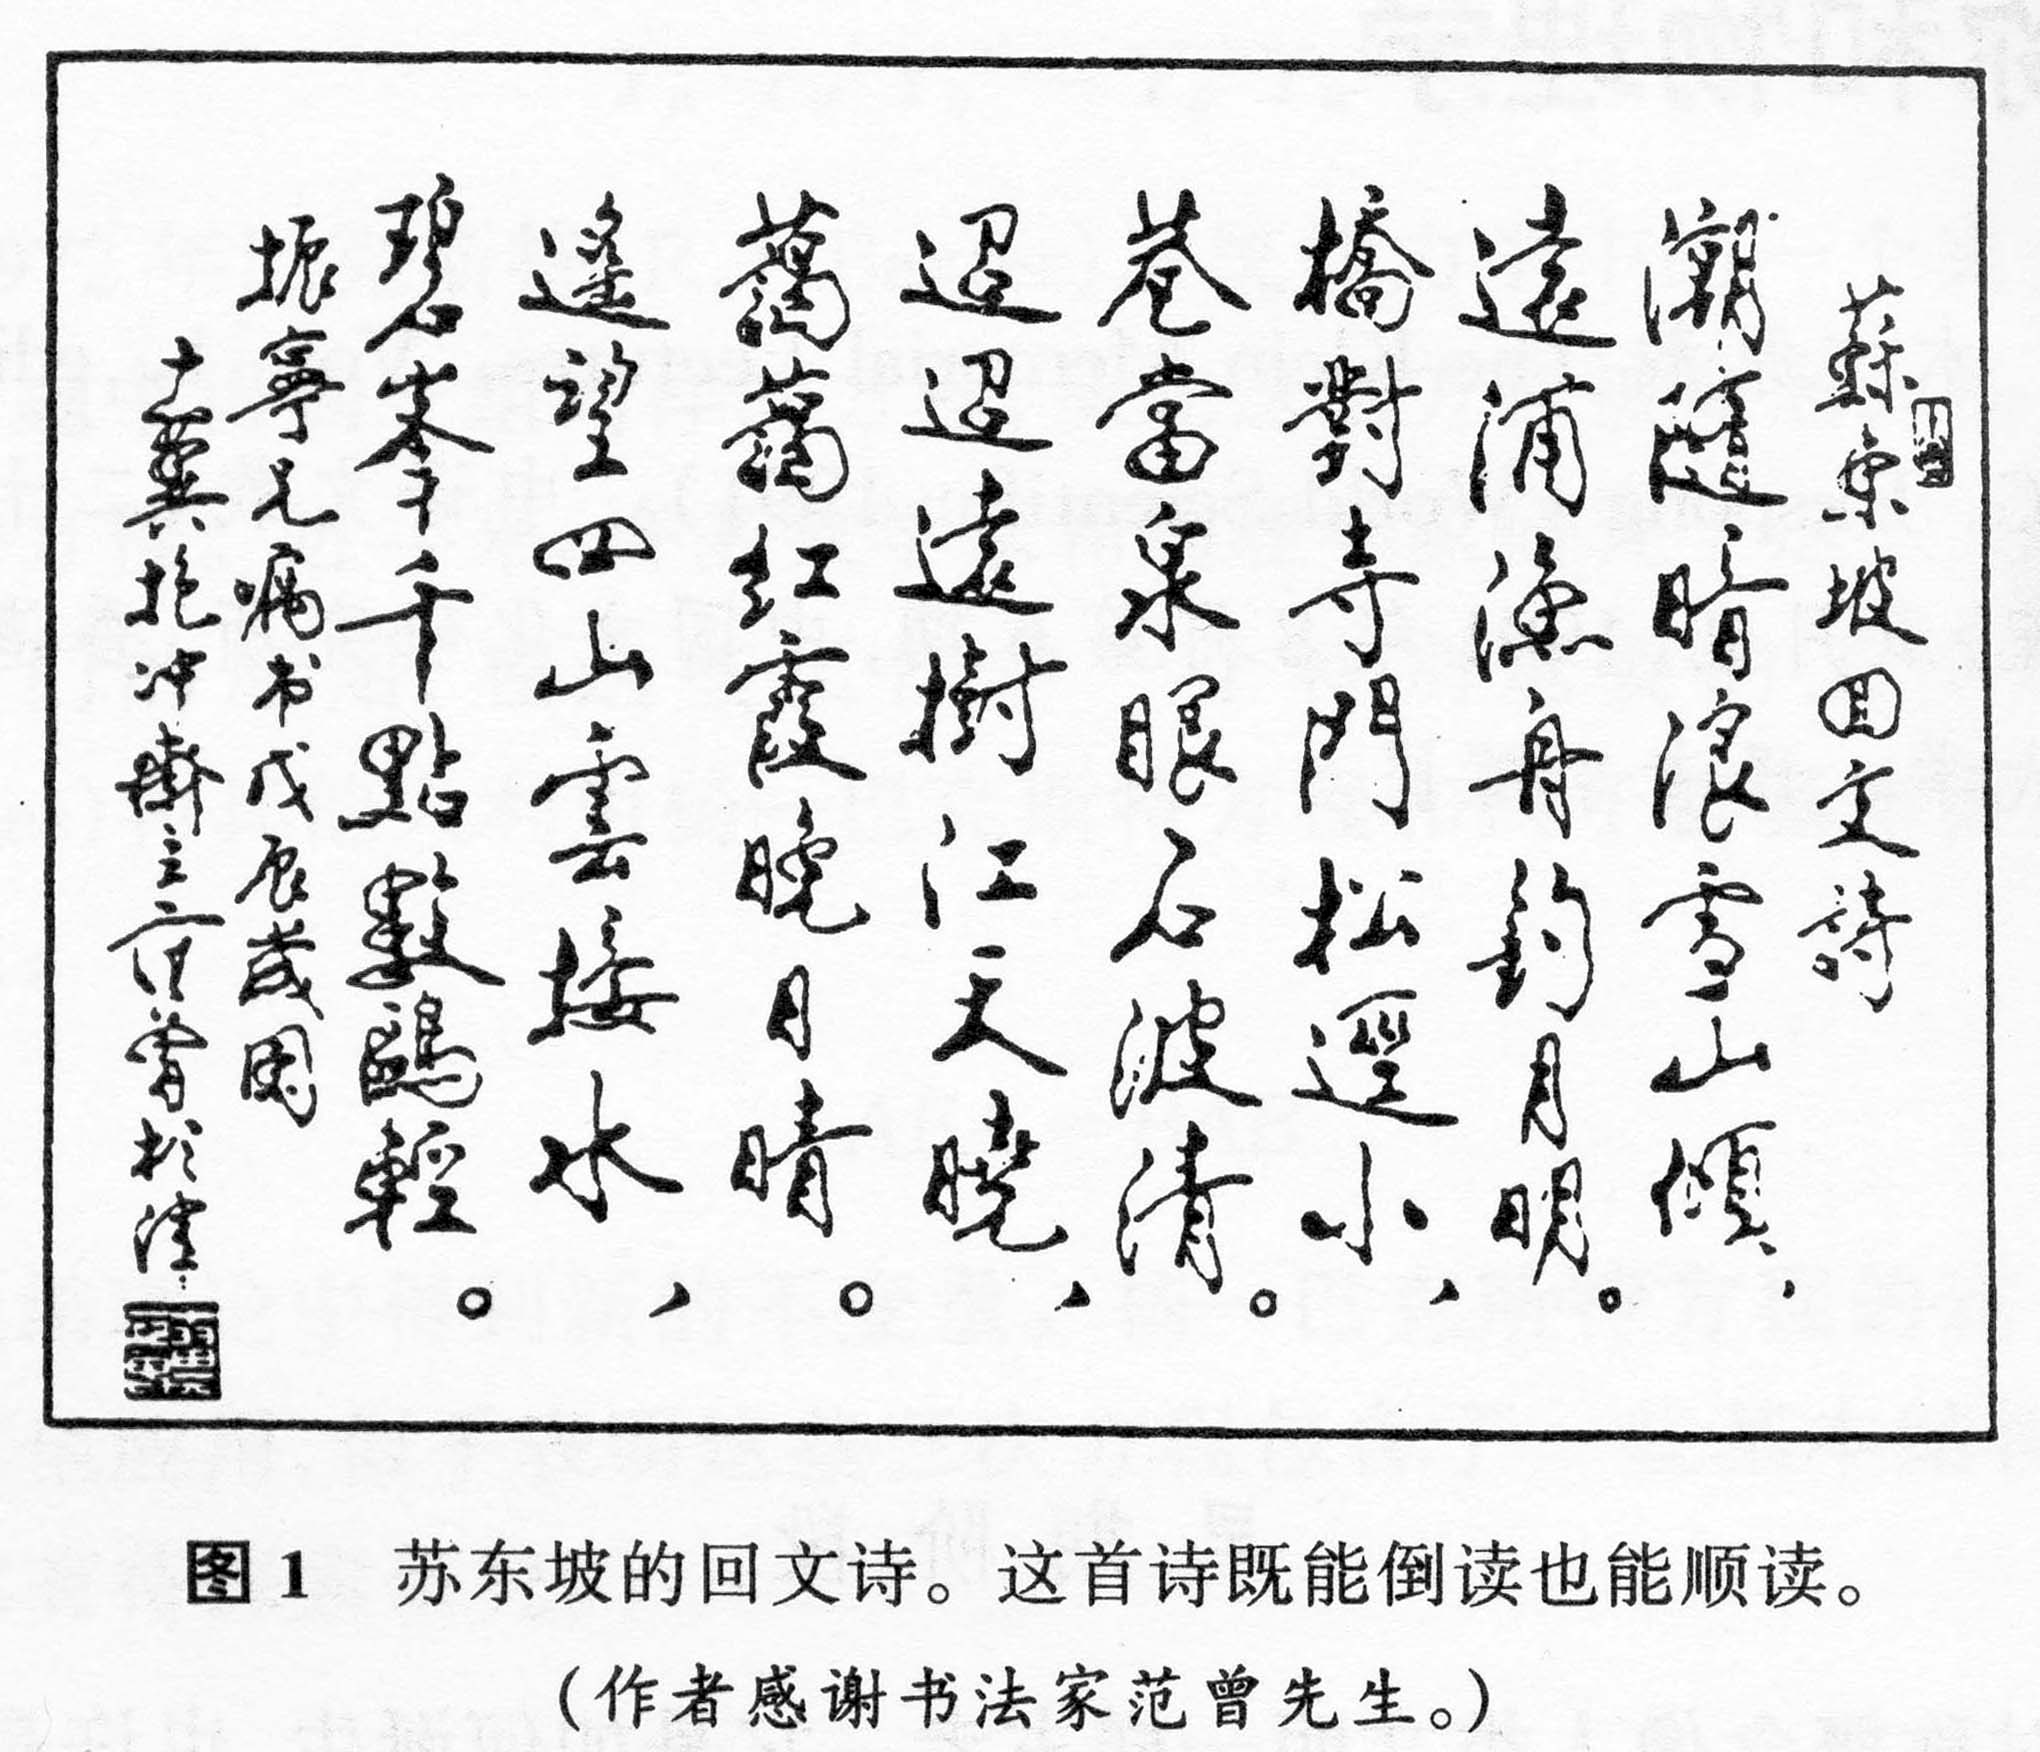 蘇東坡回文詩
潮隨暗浪雪山傾、
遠浦漁舟釣月明。
橋對寺門松逕小、
巷當泉眼石波清。
迢迢遠樹江天曉、
藹藹紅霞晚日晴。
遙望四山雲接水、
碧峯千點數鷗輕。
振寧兄嘱书戊辰歲图
十翼抱冲齋主范曾於津
图1 苏东坡的回文诗。这首诗既能倒读也能顺读。
(作者感谢书法家范曾先生。)